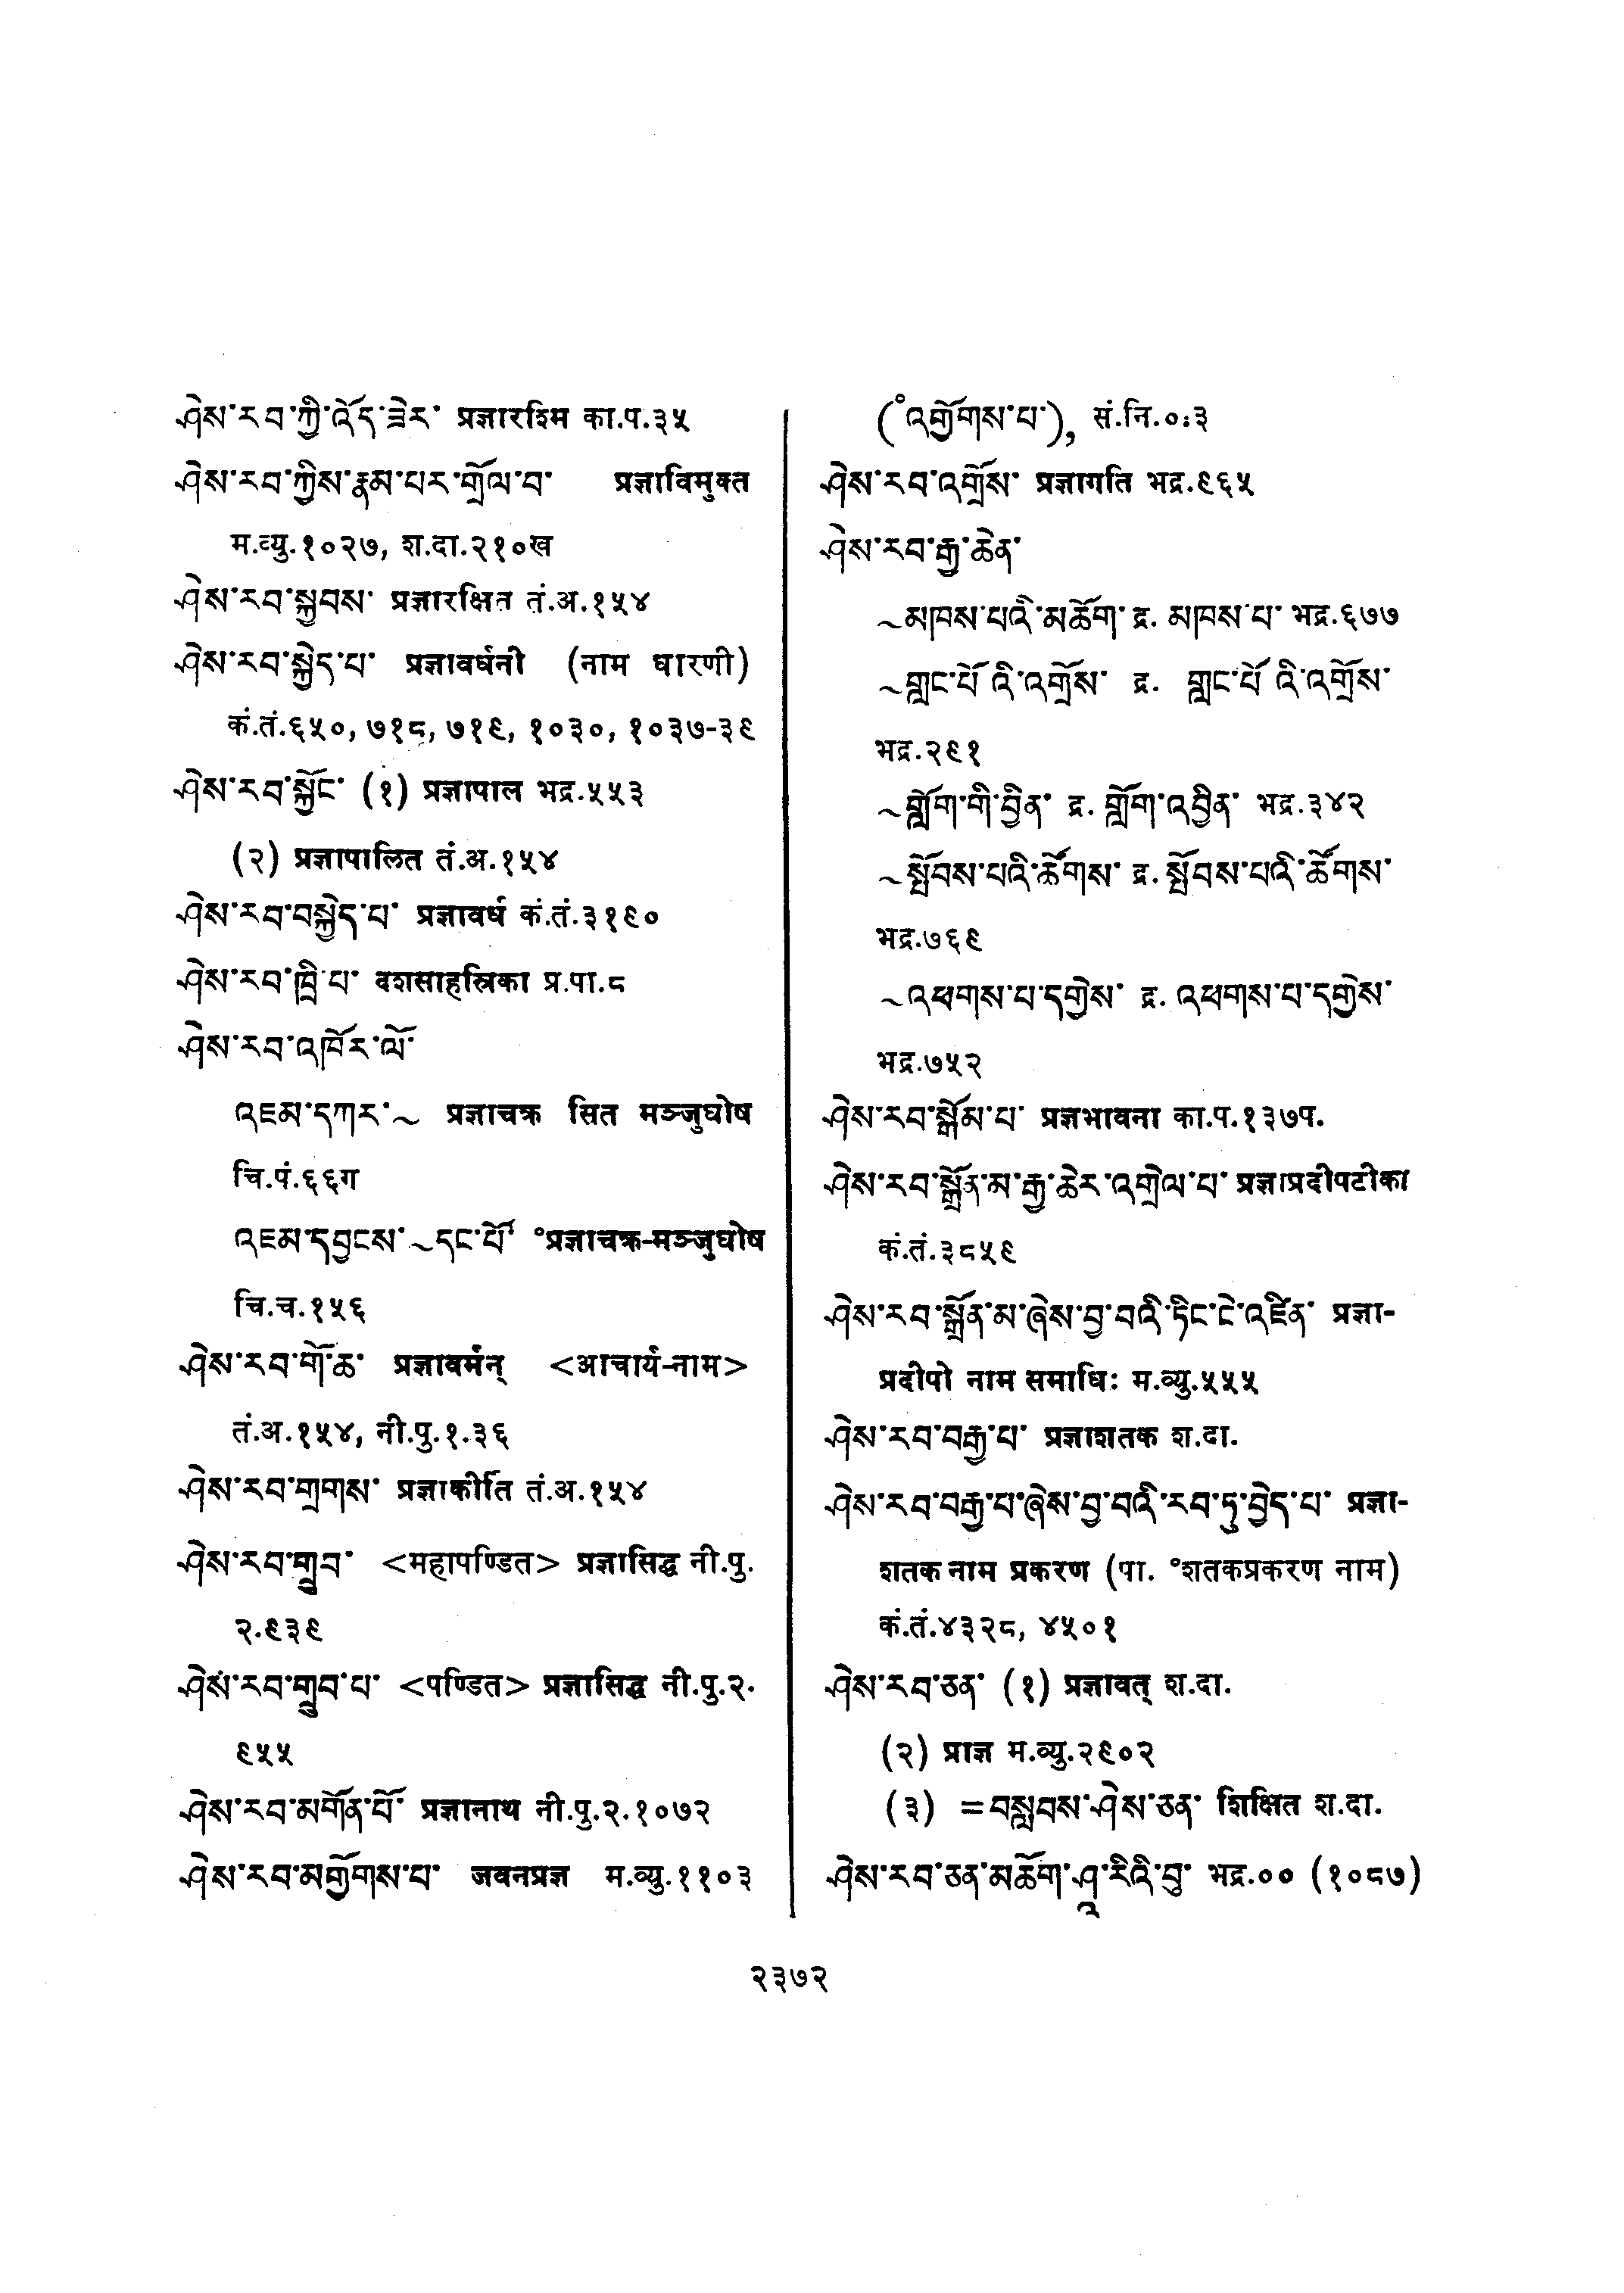 ཤེས་རབ་ཀྱི་འོད་ཟེར་ प्रज्ञारश्मि का.प.३५
ཤེས་རབ་ཀྱིས་རྣམ་པར་གྲོལ་བ་ प्रज्ञाविमुक्त
म.व्यु.१०२७, श.दा.२१०ख
ཤེས་རབ་སྐྱབས་ प्रज्ञारक्षित तं.अ.१५४
ཤེས་རབ་སྐྱེད་པ་ प्रज्ञावर्धनी (नाम धारणी)
कं.तं.६५०, ७१८, ७१९, १०३०, १०३७-३९
ཤེས་རབ་སྐྱོང་ (१) प्रज्ञापाल भद्र.५५३
(२) प्रज्ञापालित तं.अ.१५४
ཤེས་རབ་བསྐྱེད་པ་ प्रज्ञावर्ध कं.तं.३१९०
ཤེས་རབ་ཁྲི་པ་ दशसाहस्रिका प्र.पा.८
ཤེས་རབ་འཁོར་ལོ་
འཇམ་དཀར་~ प्रज्ञाचक्र सित मञ्जुघोष
चि.पं.६६ग
འཇམ་དབྱངས་~དང་པོ་ °प्रज्ञाचक्र-मञ्जुघोष
चि.च.१५६
ཤེས་རབ་གོ་ཆ་ प्रज्ञावर्मन् <आचार्य-नाम>
तं.अ.१५४, नी.पु.१.३६
ཤེས་རབ་གྲགས་ प्रज्ञाकीर्ति तं.अ.१५४
ཤེས་རབ་གྲུབ་ <महापण्डित> प्रज्ञासिद्ध नी.पु.
२.९३९
ཤེས་རབ་གྲུབ་པ་ <पण्डित> प्रज्ञासिद्ध नी.पु.२.
९५५
ཤེས་རབ་མགོན་པོ་ प्रज्ञानाथ नी.पु.२.१०७२
ཤེས་རབ་མགྱོགས་པ་ जवनप्रज्ञ म.व्यु.११०३
(°འགྱོགས་པ་), सं.नि.०ः३
ཤེས་རབ་འགྲོས་ प्रज्ञागति भद्र.९६५
ཤེས་རབ་རྒྱ་ཆེན་
~མཁས་པའི་མཆོག་ द्र. མཁས་པ་ भद्र.६७७
~གླང་པོ་འི་འགྲོས་ द्र. གླང་པོ་འི་འགྲོས་
भद्र.२९१
~གློག་གི་བྱིན་ द्र. གློག་འབྱིན་ भद्र.३४२
~སྤོབས་པའི་ཚོགས་ द्र. སྤོབས་པའི་ཚོགས་
भद्र.७६९
~འཕགས་པ་དགྱེས་ द्र. འཕགས་པ་དགྱེས་
भद्र.७५२
ཤེས་རབ་སྒོམ་པ་ प्रज्ञभावना का.प.१३७प.
ཤེས་རབ་སྒྲོན་མ་རྒྱ་ཆེར་འགྲེལ་པ་ प्रज्ञाप्रदीपटीका
कं.तं.३८५९
ཤེས་རབ་སྒྲོན་མ་ཞེས་བྱ་བའི་ཏིང་ངེ་འཛིན་ प्रज्ञा-
प्रदीपो नाम समाधिः म.व्यु.५५५
ཤེས་རབ་བརྒྱ་པ་ प्रज्ञाशतक श.दा.
ཤེས་རབ་བརྒྱ་པ་ཞེས་བྱ་བའི་རབ་ཏུ་བྱེད་པ་ प्रज्ञा-
शतक नाम प्रकरण (पा. °शतकप्रकरण नाम)
कं.तं.४३२८, ४५०१
ཤེས་རབ་ཅན་ (१) प्रज्ञावत् श.दा.
(२) प्राज्ञ म.व्यु.२९०२
(३) =བསླབས་ཤེས་ཅན་ शिक्षित श.दा.
ཤེས་རབ་ཅན་མཆོག་ཤཱ་རིའི་བུ་ भद्र.०० (१०८७)
२३७२